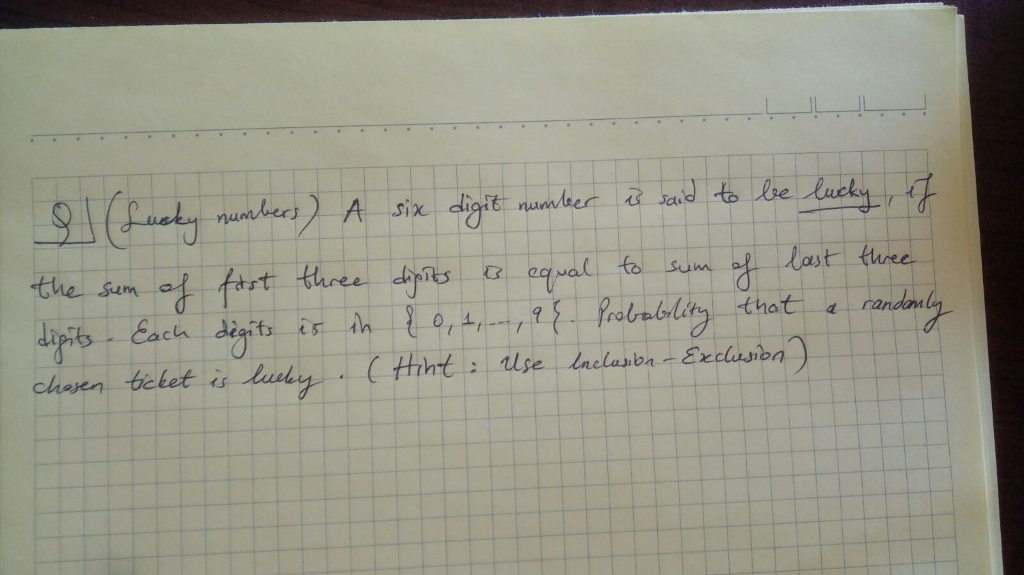 Q (Lucky numbers) A six digit number is said to be lucky, if
the sum of first three digits is equal to sum of last three
digits. Each digits is in { 0, 1, ..., 9 }. Probability that a randomly
chosen ticket is lucky. (Hint : Use Inclusion-Exclusion)